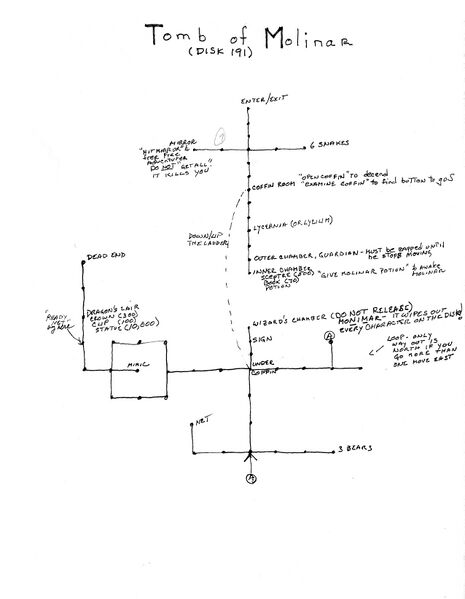 Tomb of Molinar
(DISK 191)
ENTER/EXIT
MIRROR
"HIT MIRROR" &
free FIRE
ADVENTURER
DO NOT "GET ALL"
IT KILLS YOU
6 SNAKES
"OPEN COFFIN" TO DECEND
COFFIN ROOM "EXAMINE COFFIN" to find button to go S
DOWN/UP
THE LADDER
LYCERNIA (OR LYCIUM)
OUTER CHAMBER, GUARDIAN - MUST be zapped until
he STOPS MOVING
INNER CHAMBER
SCEPTRE (200) "GIVE MOLINAR POTION" to AWAKE
BOOK (70) MOLINAR
POTION
DEAD END
"READY
NET"
by here
DRAGON'S LAIR
CROWN (300)
CUP (100)
STATUE (10,000)
MIMIC
WIZARD'S CHAMBER (DO NOT RELEASE)
MONIMAR - IT WIPES OUT
EVERY CHARACTER ON THE DISK!
SIGN
A
UNDER
COFFIN
LOOP - ONLY
WAY OUT IS
NORTH IF YOU
GO MORE THAN
ONE MOVE EAST
NET
3 BEARS
A